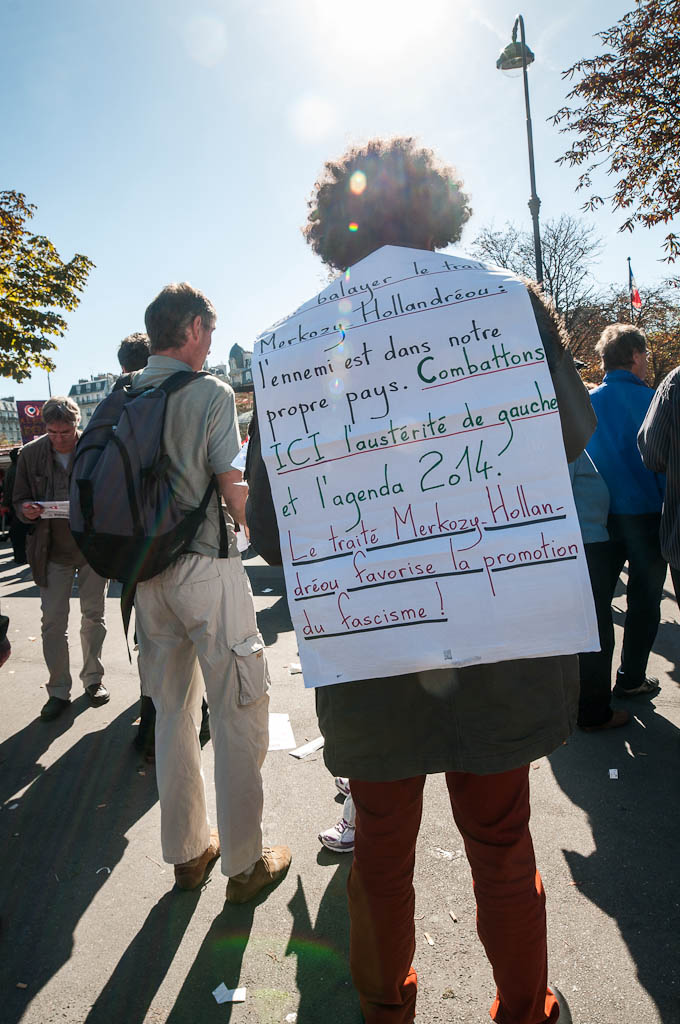 balayer le traité
Merkozy-Hollandréou :
l'ennemi est dans notre
propre pays. Combattons
ICI l'austérité de gauche
et l'agenda 2014.
Le traité Merkozy-Hollan-
dréou favorise la promotion
du fascisme !